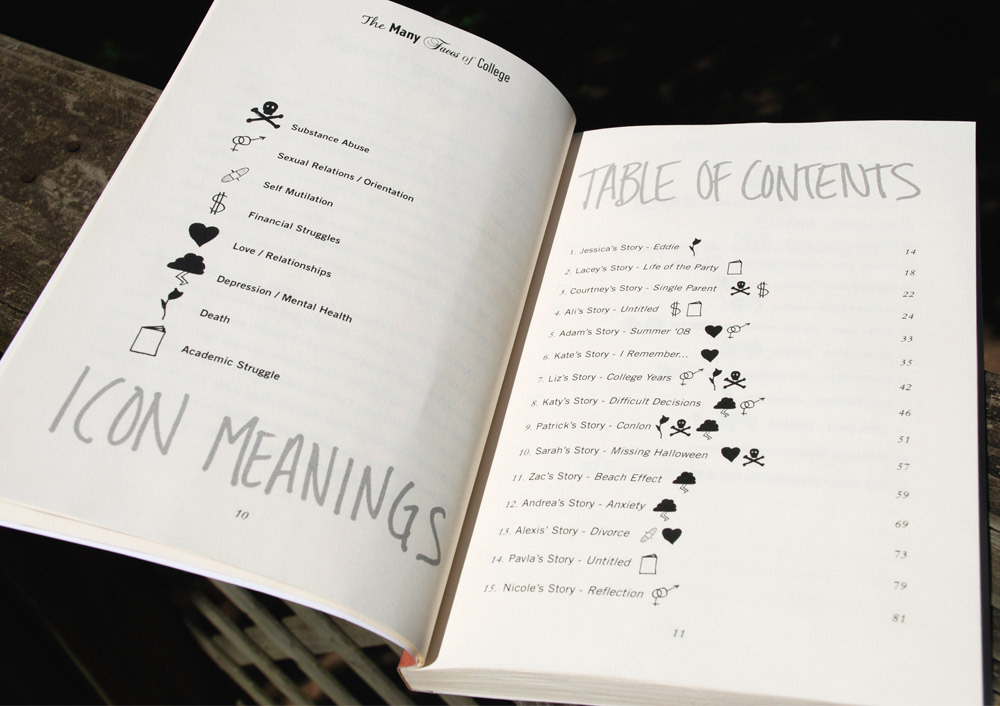 The Many Faces of College
Substance Abuse
Sexual Relations / Orientation
Self Mutilation
Financial Struggles
Love / Relationships
Depression / Mental Health
Death
Academic Struggle
ICON MEANINGS
10
TABLE OF CONTENTS
1. Jessica's Story - Eddie 14
2. Lacey's Story - Life of the Party 18
3. Courtney's Story - Single Parent 22
4. Ali's Story - Untitled 24
5. Adam's Story - Summer '08 33
6. Kate's Story - I Remember... 35
7. Liz's Story - College Years 42
8. Katy's Story - Difficult Decisions 46
9. Patrick's Story - Conlon 51
10. Sarah's Story - Missing Halloween 57
11. Zac's Story - Beach Effect 59
12. Andrea's Story - Anxiety 69
13. Alexis' Story - Divorce 73
14. Pavla's Story - Untitled 79
15. Nicole's Story - Reflection 81
11